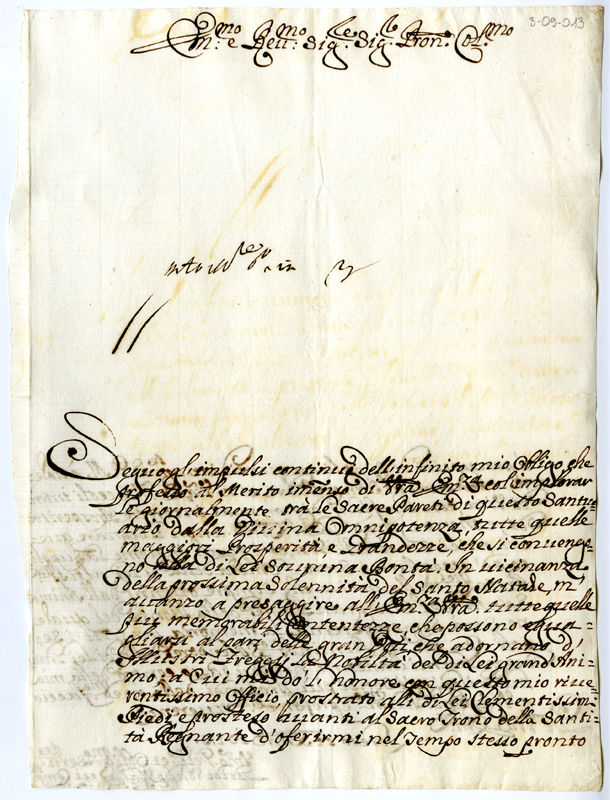 3-09-013
Em.mo e Reu.mo Sig.re Sig.r Pron. Col.mo
Seguo gli impulsi continui dell'infinito mio Obligo, che
professo al Merito imenso di Vra Em.za col implorar
le giornalmente tra le Sacre Pareti di questo Santu-
ario dalla Diuina Omnipotenza, tutte quelle
maggiori Prosperità, e Grandezze, che si conuengo-
no alla di Lei Sourana Bontà. In uicinanza
della prossima Solennità del Santo Natale, m'
auanzo a presaggire all' Em.za Vra. tutte quelle
più memorabili Contentezze, che possono egua-
gliarsi al pari delle gran Doti, che adornano d'
Illustri Freggi la Nobiltà del di Lei grand'Ani-
mo; a Cui mi do l'honore con questo mio riue-
rentissimo Officio, prostrato alli di Lei Clementissimi
Piedi e prosteso auanti al Sacro Trono della Santi-
tà Regnante d'oferirmi nel Tempo stesso pronto